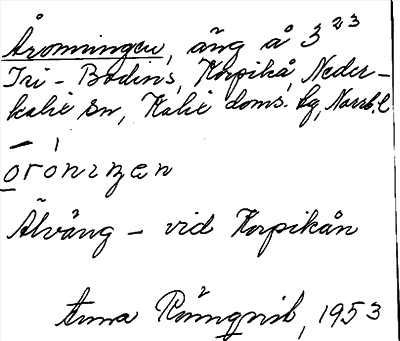 Åromningen, äng å 3²³
Tri-Bodins, Korpikå, Neder-
kalix sn, Kalix doms. lg, Norrb. l
òrónıŋen
Älväng – vid Korpikån
Anna Rönnqvist, 1953